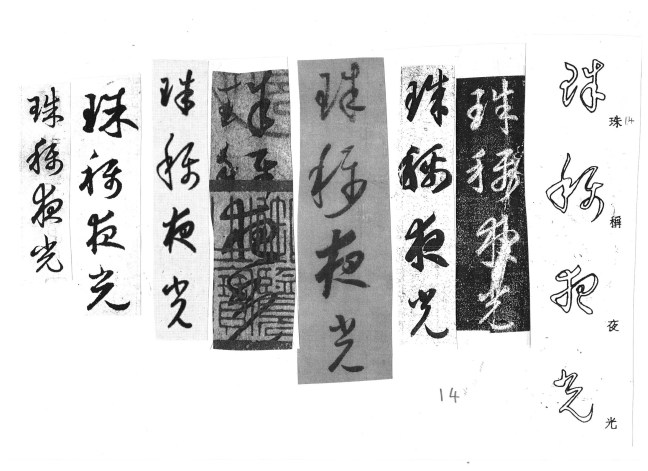 珠稱夜光
珠稱夜光
珠稱夜光
珠稱夜光
珠稱夜光
珠稱夜光
珠稱夜光
珠稱夜光
珠稱夜光
14
14